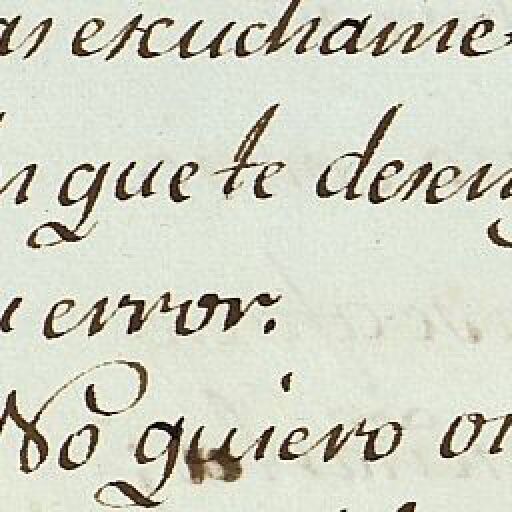 as escuchame
que te desen
error.
No quiero oi